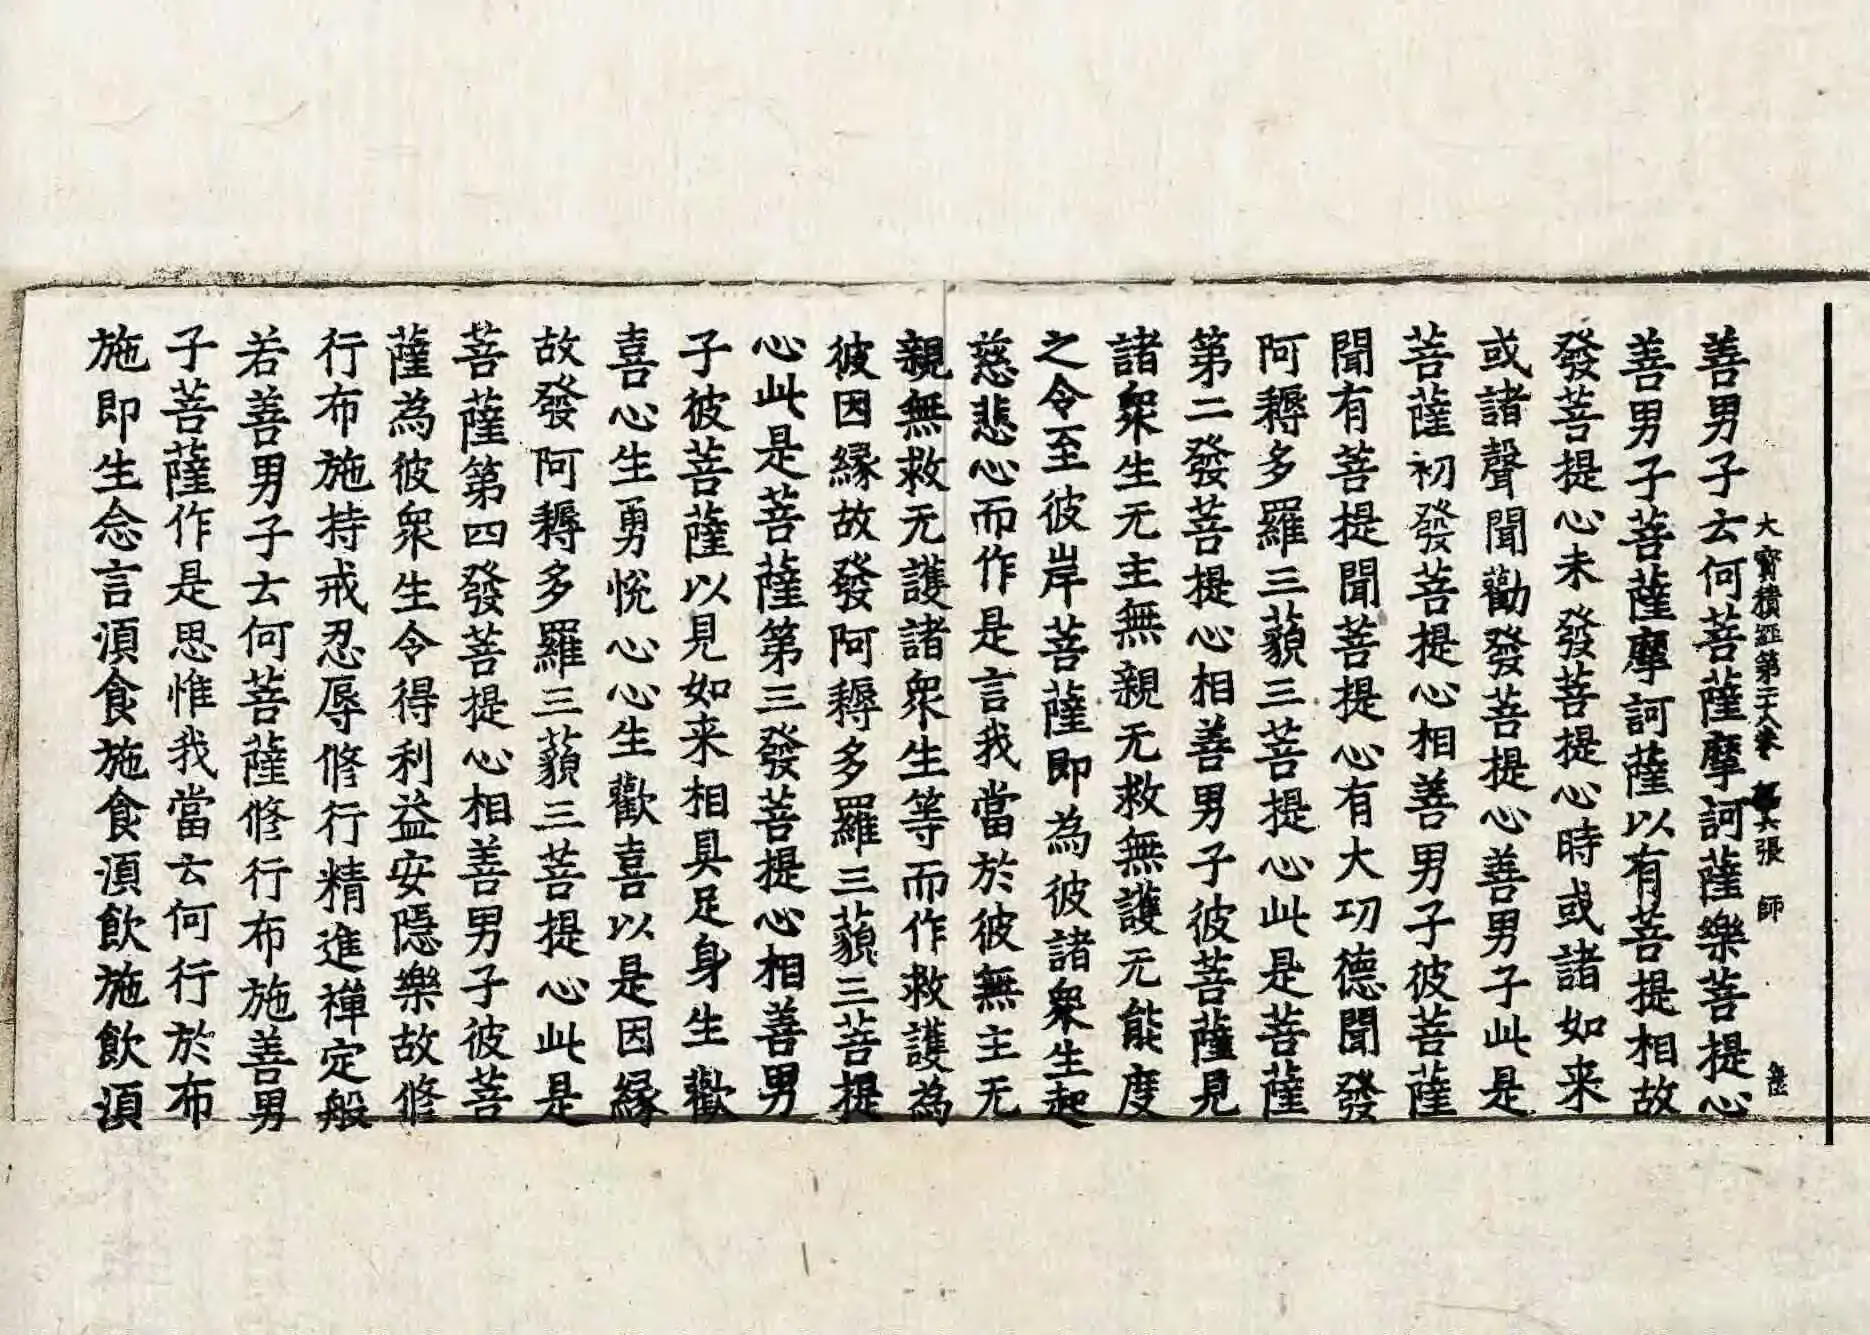 大寶積經第二十八卷 第六張 師
善男子云何菩薩摩訶薩樂菩提心
善男子菩薩摩訶薩以有菩提相故
發菩提心未發菩提心時或諸如来
或諸聲聞勸發菩提心善男子此是
菩薩初發菩提心相善男子彼菩薩
聞有菩提聞菩提心有大功德聞發
阿耨多羅三藐三菩提心此是菩薩
第二發菩提心相善男子彼菩薩見
諸衆生无主無親无救無護无能度
之令至彼岸菩薩即為彼諸衆生起
慈悲心而作是言我當於彼無主无
親無救无護諸衆生等而作救護為
彼因緣故發阿耨多羅三藐三菩提
心此是菩薩第三發菩提心相善男
子彼菩薩以見如来相具足身生歡
喜心生勇悅心心生歡喜以是因緣
故發阿耨多羅三藐三菩提心此是
菩薩第四發菩提心相善男子彼菩
薩為彼衆生令得利益安隱樂故修
行布施持戒忍辱修行精進禪定般
若善男子云何菩薩修行布施善男
子菩薩作是思惟我當云何行於布
施即生念言須食施食須飲施飲須